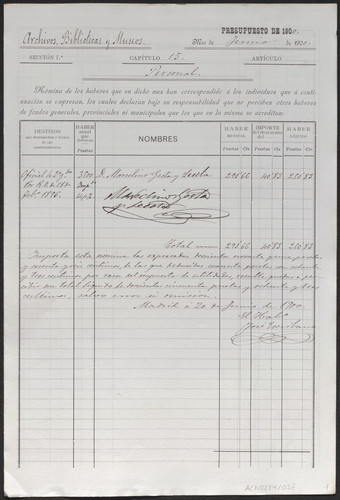 PRESUPUESTO DE 1900
Archivos, Bibliotecas y Museos.
Mes de Junio de 1900.
SECCIÓN 7.ª CAPÍTULO 15. ARTÍCULO
Personal.
Nómina de los haberes que en dicho mes han correspondido á los individuos que á conti-
nuación se expresan, los cuales declaran bajo su responsabilidad que no perciben otros haberes
de fondos generales, provinciales ni municipales que los que en la misma se acreditan.
DESTINOS
HABER anual que disfrutan
NOMBRES
HABER mensual
IMPORTE del descuento
HABER LÍQUIDO
Pesetas Pesetas Cts Pesetas Cts Pesetas Cts
Oficial 3500 D. Marcelino Gesta y Leceta 291 66 40 83 250 83
Marcelino Gesta
y Leceta
Total 291 66 40 83 250 83
Importa esta nómina las expresadas doscientas noventa y una pesetas
y sesenta y seis céntimos, de las que deducidas cuarenta pesetas con ochenta
y tres céntimos por razón del impuesto de utilidades, resulta
un total líquido de doscientas cincuenta pesetas y ochenta y tres
céntimos, salvo error ú omisión.
Madrid á 20 de Junio de 1900.
El Habº
José